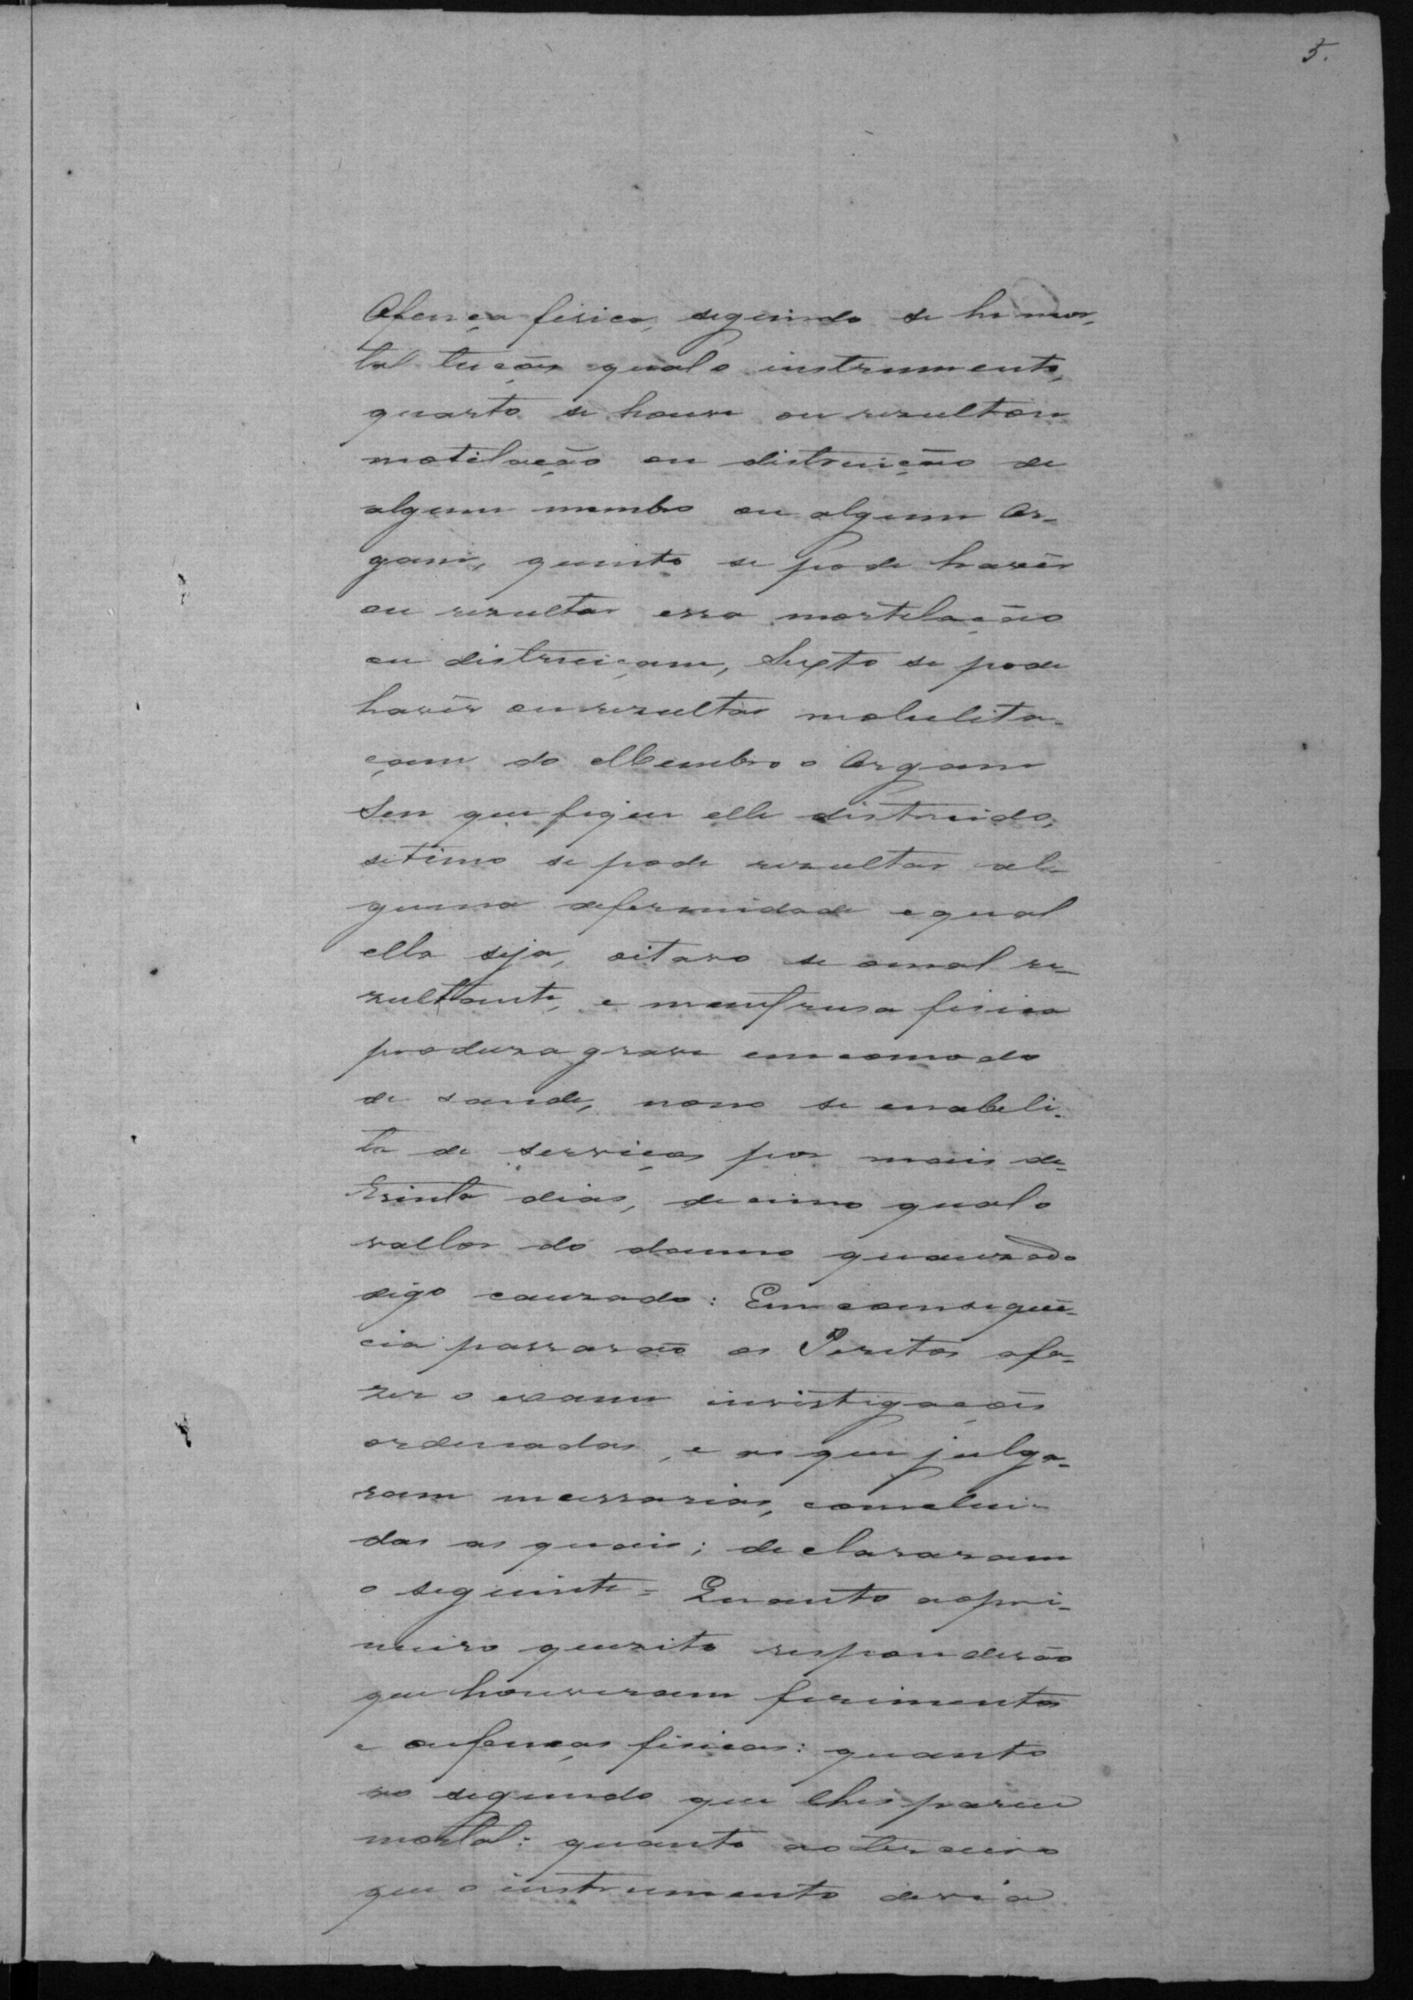 5.
Ofença fisica, segundo se he mor-
tal tucão qual o instrumento,
quarto se houve ou rezultou
motilação ou distruição de
algum membro ou algum Or-
gam, quinto se pode havêr
ou rezultar essa mortilação
ou distruiçam, Sexto se pode
havêr ou rezultar
çam do Membro o Orgam
Sen que fiqeu elle distruido,
setimo se pode rezultar al-
guma deformidade e qual
ella seja, oitavo se omal re-
zultante, e fisica
produza grave emcomodo
de saude, nono se enabeli-
ta de serviços por mais de
trinta dias, decimo qual o
vallor do danno quauzado
digo cauzado: Em comsequê-
cia passarão os Peritos afa-
zer o exame investigaçois
ordenadas, e as que julga-
ram necessarias, comclui-
das as quais; declararam
o seguinte = Quanto aopri-
meiro quezito responderão
que houveram ferimentos
e oufenças fisicas: quanto
ao segundo que lhes pareu
mortal: quanto ao terceiro
que o instrumento devia